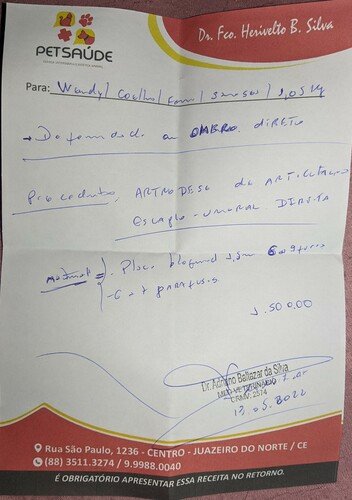 PETSAÚDE
CLÍNICA VETERINÁRIA E ESTÉTICA ANIMAL
Dr. Fco. Herivelto B. Silva
Para: Wandy / Coelho / Fem / 1,05 kg
→ OMBRO DIREITO
ARTRODESE de ARTICULAÇÃO
ESCAPULO-UMERAL DIREITA
Material: Placa bloqueada 1,5mm 6 a 9 furos
- 6 a 7 PARAFUSOS
1.500,00
Dr. Adriano Baltazar da Silva
MÉD VETERINÁRIO
CRMV: 2574
13.05.2022
Rua São Paulo, 1236 - CENTRO - JUAZEIRO DO NORTE / CE
(88) 3511.3274 / 9.9988.0040
É OBRIGATÓRIO APRESENTAR ESSA RECEITA NO RETORNO.